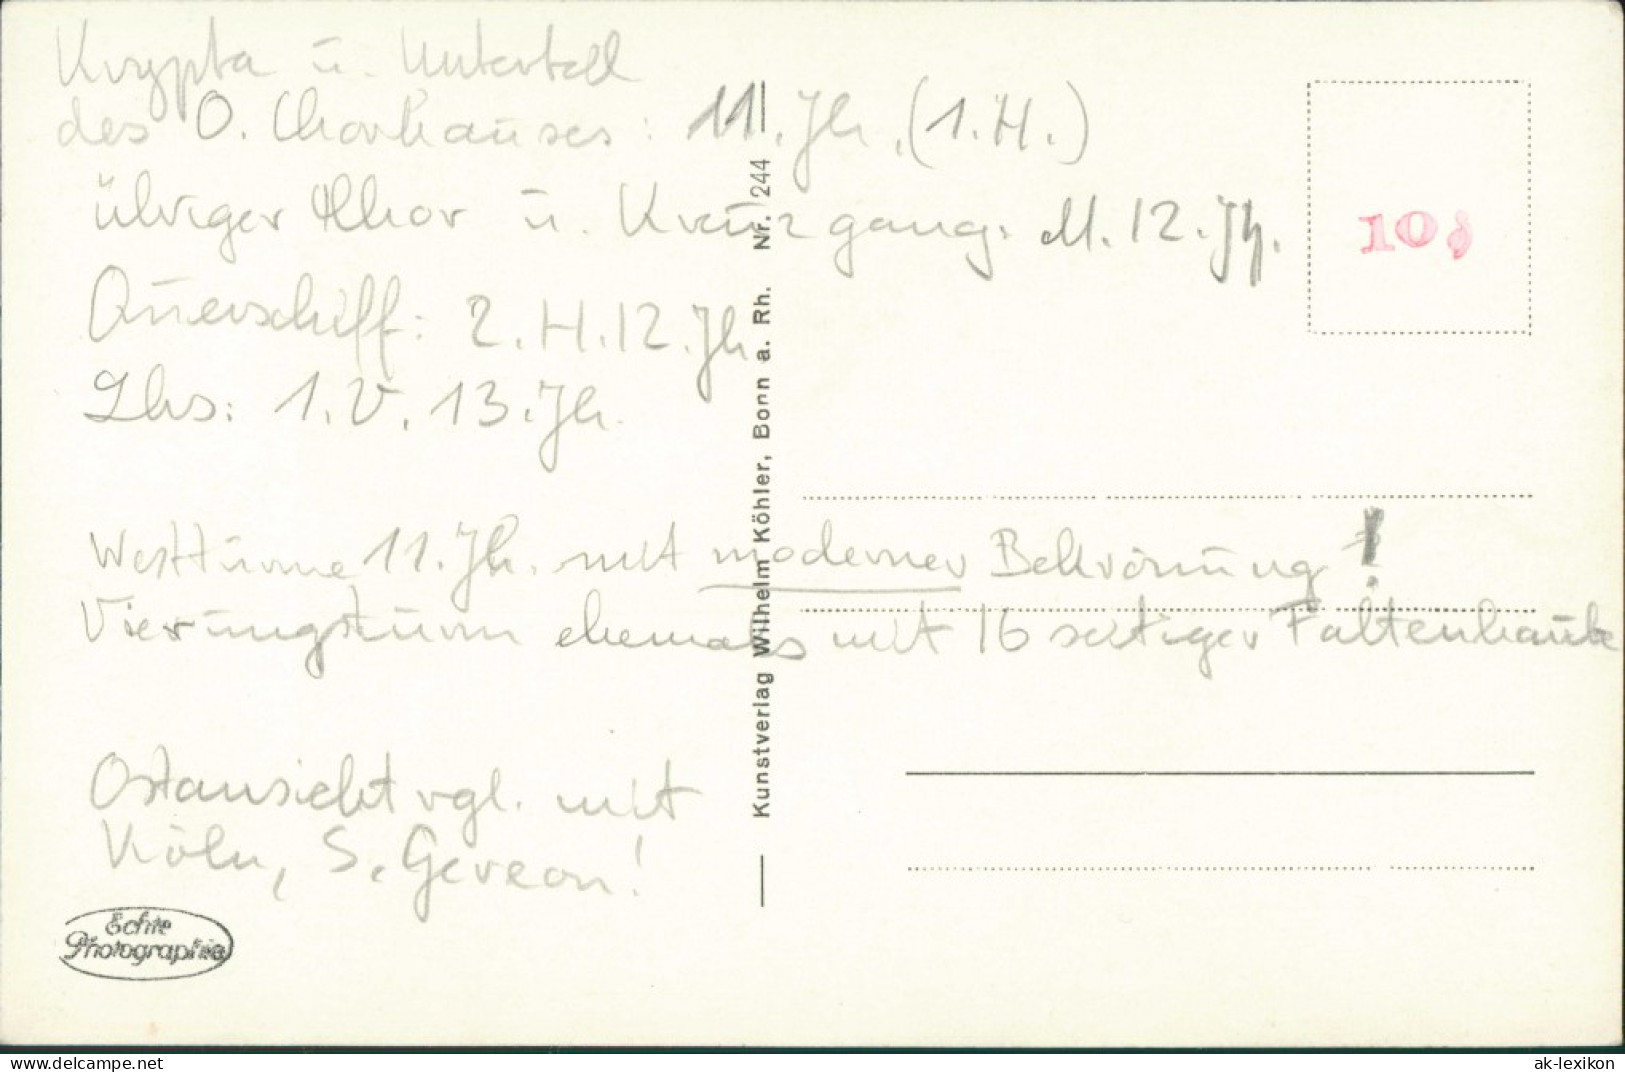 Krypta u. Unterteil
des O. Chorhauses: 11. Jh. (1.H.)
übriger Chor u. Kreuzgang: M. 12. Jh.
Querschiff: 2. H. 12. Jh
Lhs: 1. V. 13. Jh.
Westtürme 11. Jh. mit moderner Bekrönung!
Vierungsturm ehemals mit 16 seitiger Faltenhaube
Ostansicht vgl. mit
Köln, S. Gereon!
Echte
Photographie
Kunstverlag Wilhelm Köhler, Bonn a. Rh. Nr. 244
10
the-melser.com
ak-lexikon